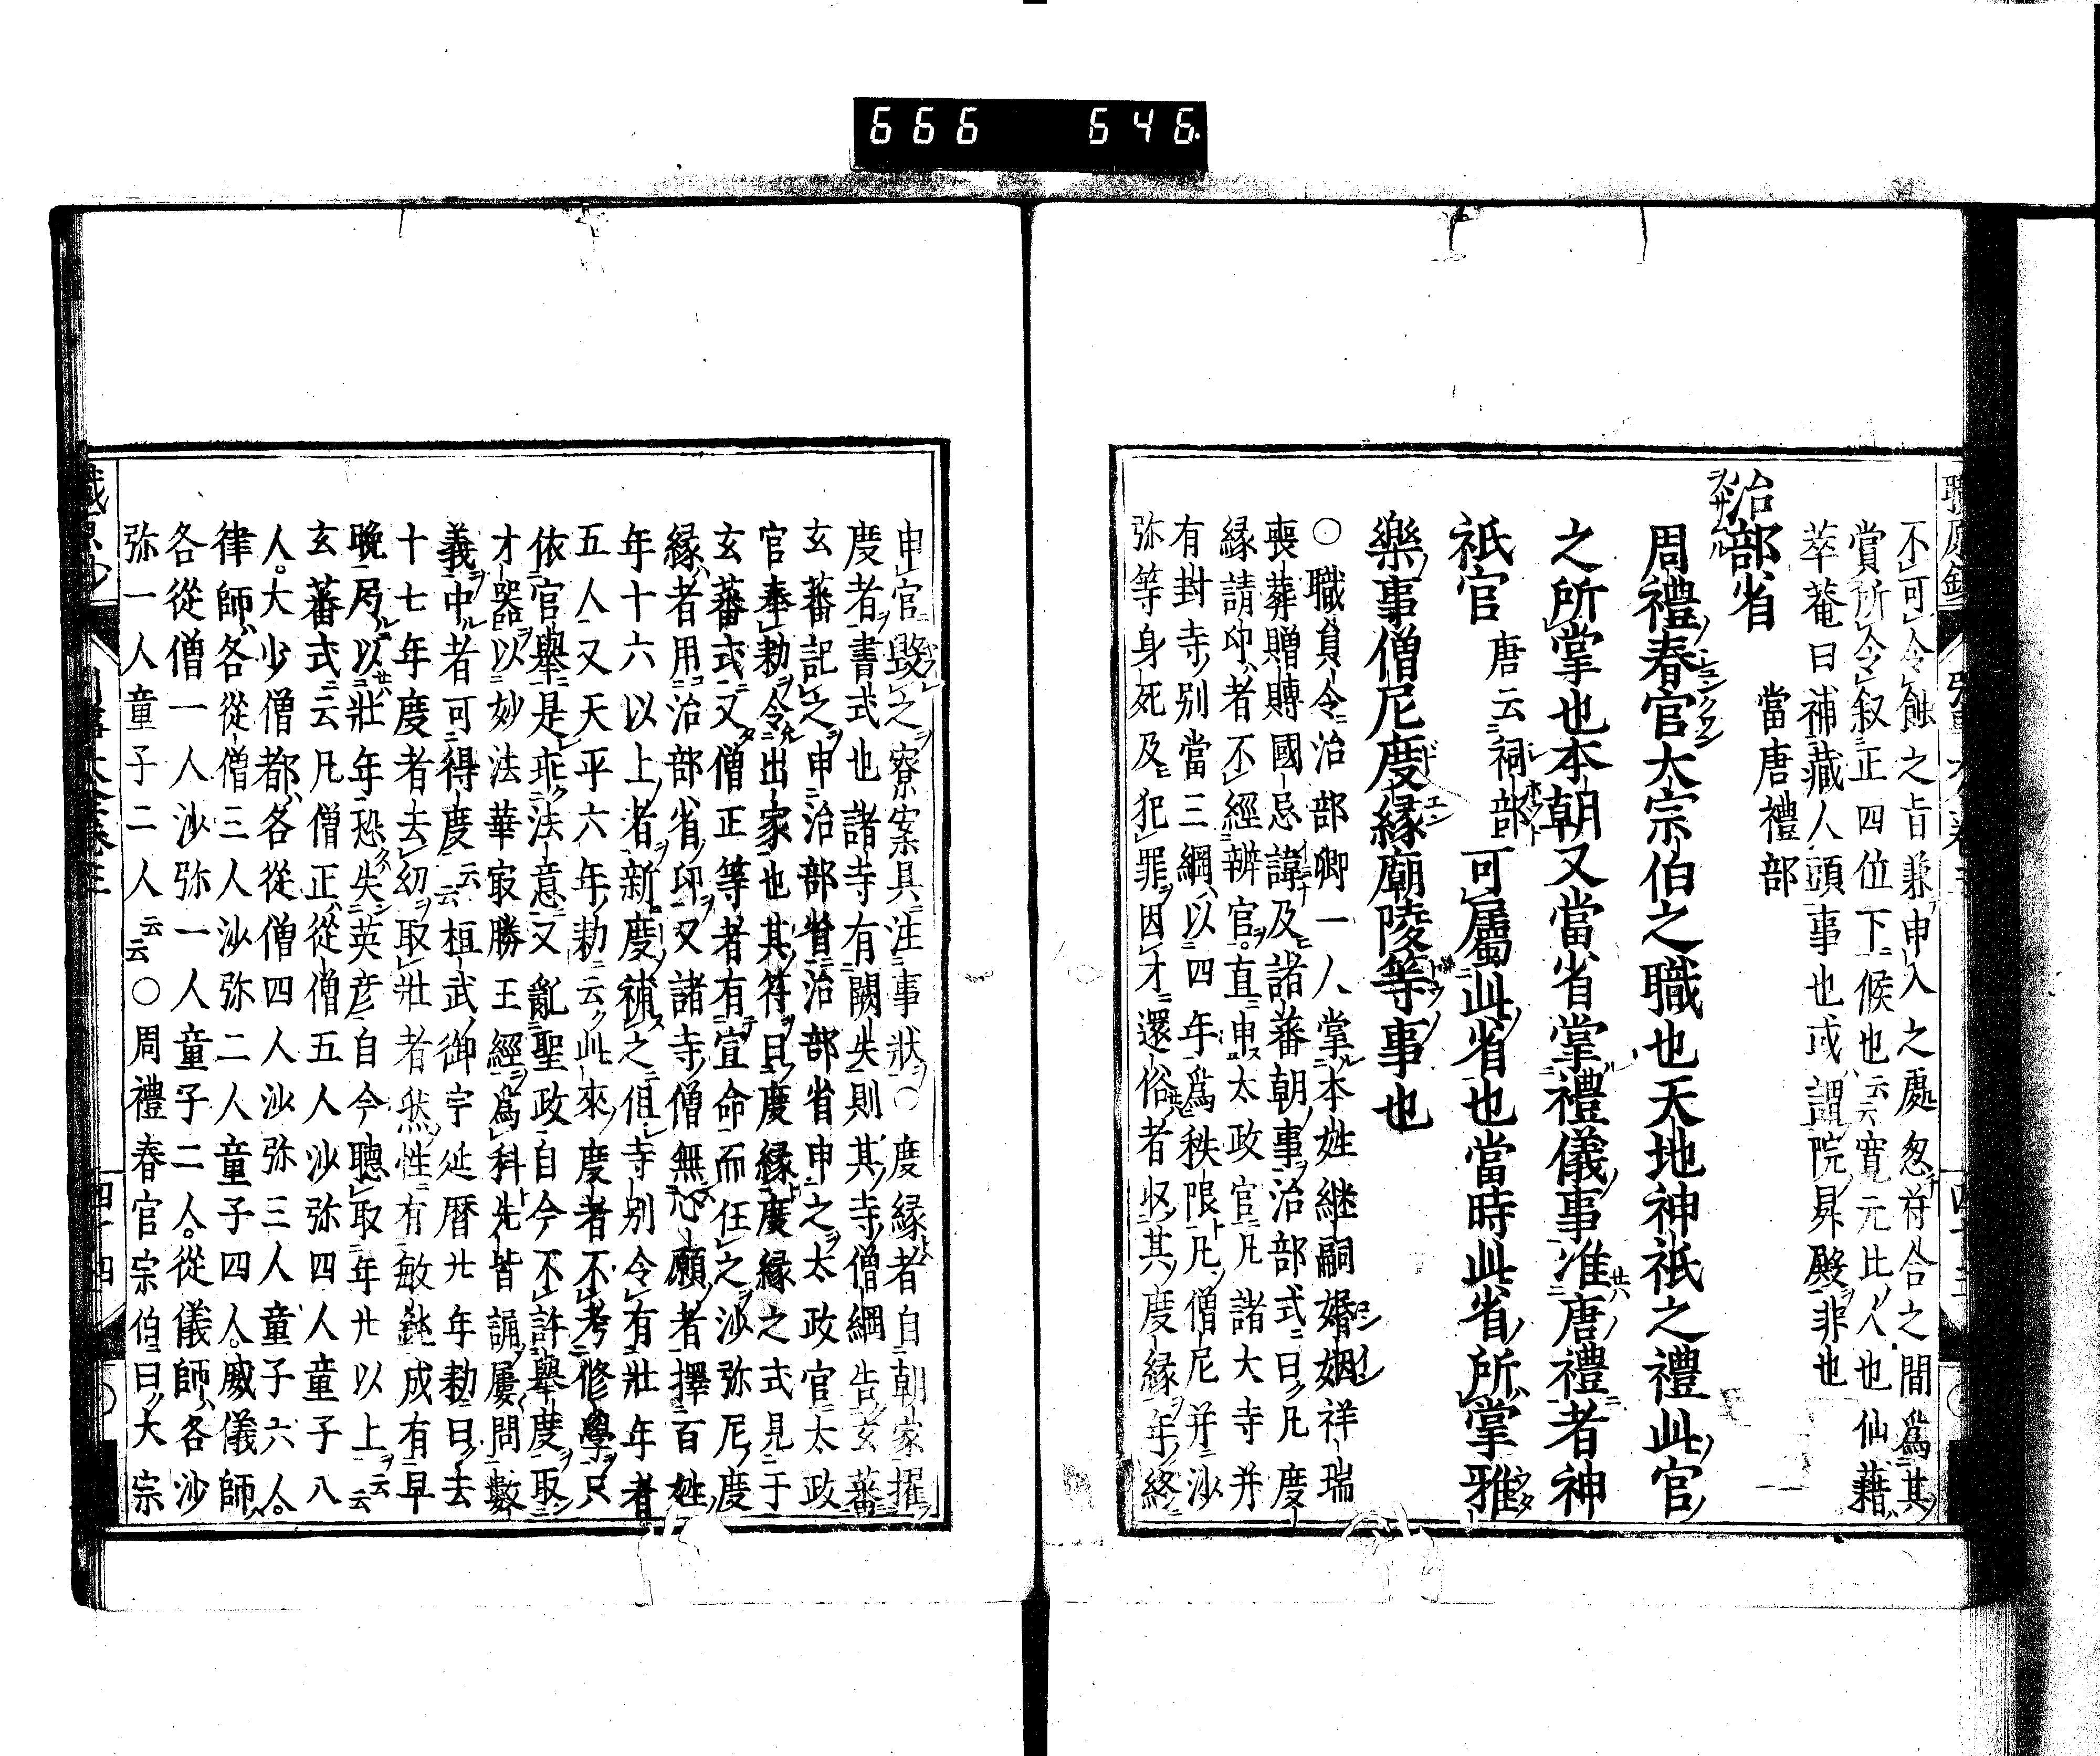 666 646
不可令蝕之旨兼申入之處忽符合之間爲其
賞所令叙正四位下候也云云寛元比人也仙藉
萃菴曰補藏人頭事也或謂院昇殿非也
治部省 當唐禮部
周禮春官大宗伯之職也天地神祇之禮此官
之所掌也本朝又當省掌禮儀事准唐禮者神
祇官 唐云祠部 可屬此省也當時此省所掌雅
樂事僧尼度緣廟陵等事也
○職員令治部卿一人掌本姓継嗣婚姻祥瑞
喪葬贈賻國忌諱及諸蕃朝事治部式曰凡度
緣請印者不經辨官直申太政官凡諸大寺并
有封寺別當三綱以四年爲秩限凡僧尼并沙
弥等身死及犯罪因才還俗者収其度緣年終
申官毀之寮案具注事狀○度緣者自朝家擢
度者書式也諸寺有闕失則其寺僧綱告玄蕃
玄蕃記之申治部省治部省申之太政官太政
官奉勅令出家也其符曰度緣度緣之式見于
玄蕃式又僧正等者有宣命而任之沙弥尼度
緣者用治部省印又諸寺僧無心願者擇百姓
年十六以上者新度補之但寺別令有壯年者
五人又天平六年勅云此來度者不考修學只
依官舉是乖法意又亂聖政自今不許舉度取
才器以妙法華㝡勝王經爲科先皆誦屢問數
義中者可得度云云桓武御宇延暦廿年勅曰去
十七年度者去幼取壯者然性有敏鈍成有早
晩局以壯年恐失英彦自今聽取年廿以上云云
玄蕃式云凡僧正從僧五人沙弥四人童子八
人大少僧都各從僧四人沙弥三人童子六人
律師各從僧三人沙弥二人童子四人威儀師
各從僧一人沙弥一人童子二人從儀師各沙
弥一人童子二人云云○周禮春官宗伯曰大宗